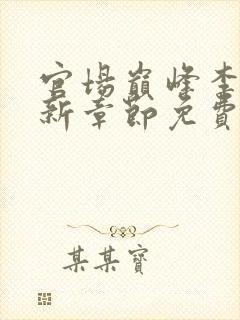 官場巔峰李
新章節免費
某某寶